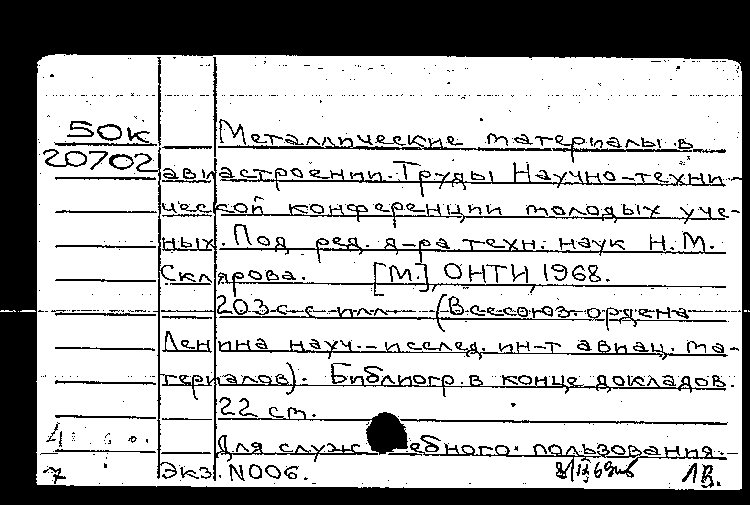 50к Металлические материалы в
20702 авиастроении. Труды Научно-техни-
ческой конференции молодых уче-
ных. Под ред. д-ра техн. наук Н.М.
Склярова. [М.], ОНТИ, 1968.
203 с. с илл. (Всесоюз. ордена
Ленина науч.-исслед. ин-т авиац. ма-
териалов). Библиогр. в конце докладов.
22 см.
Для служебного пользования.
7 Экз. N006. ЛВ.